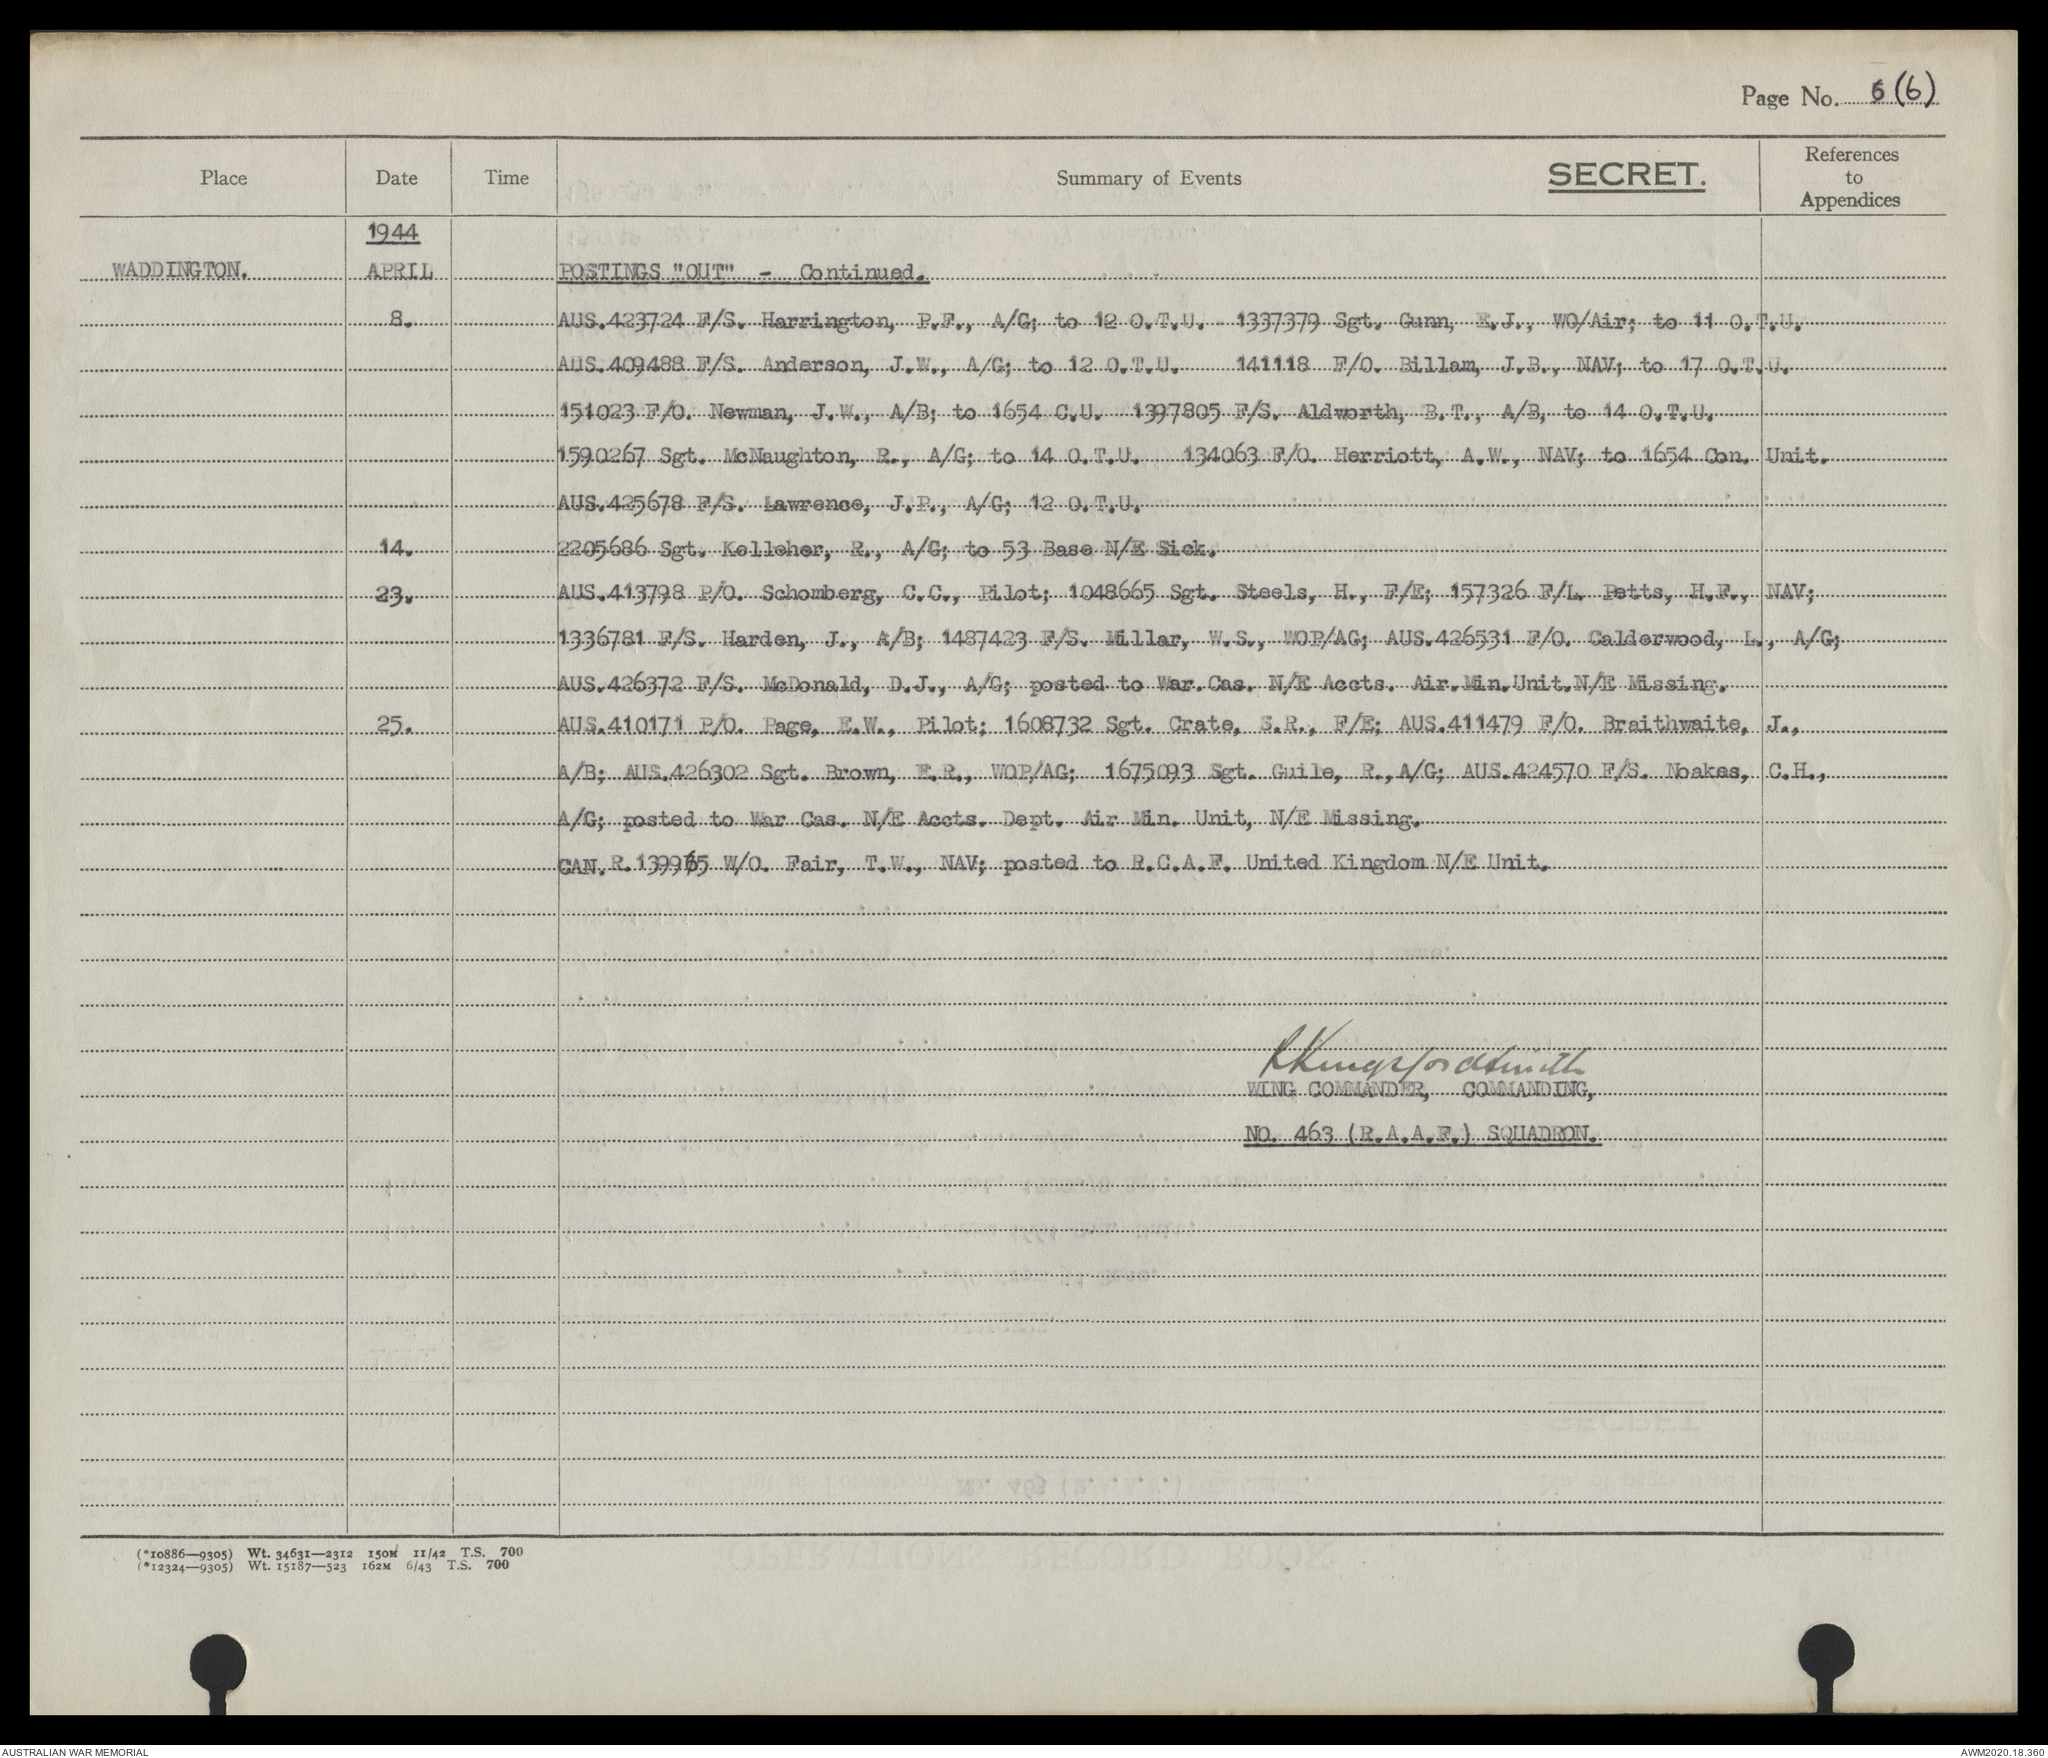 Page No. 6 (6)
Place Date Time Summary of Events SECRET. References to Appendices
1944
WADDINGTON. APRIL POSTINGS "OUT" - Continued.
8. AUS.423724 F/S. Harrington, P.F., A/G; to 12 O.T.U. 1337379 Sgt. Gunn, E.J., WO/Air; to 11 O.T.U.
AUS.409488 F/S. Anderson, J.W., A/G; to 12 O.T.U. 141118 F/O. Billam, J.B., NAV; to 17 O.T.U.
151023 F/O. Newman, J.W., A/B; to 1654 C.U. 1397805 F/S. Aldworth, B.T., A/B, to 14 O.T.U.
1590267 Sgt. McNaughton, R., A/G; to 14 O.T.U. 134063 F/O. Herriott, A.W., NAV; to 1654 Con. Unit.
AUS.425678 F/S. Lawrence, J.P., A/G; 12 O.T.U.
14. 2205686 Sgt. Kelleher, R., A/G; to 53 Base N/E Sick.
23. AUS.413798 P/O. Schomberg, C.C., Pilot; 1048665 Sgt. Steels, H., F/E; 157326 F/L. Petts, H.F., NAV;
1336781 F/S. Harden, J., A/B; 1487423 F/S. Millar, W.S., WOP/AG; AUS.426531 F/O. Calderwood, L., A/G;
AUS.426372 F/S. McDonald, D.J., A/G; posted to War.Cas. N/E Accts. Air.Min.Unit.N/E Missing.
25. AUS.410171 P/O. Page, E.W., Pilot; 1608732 Sgt. Crate, S.R., F/E; AUS.411479 F/O. Braithwaite, J.,
A/B; AUS.426302 Sgt. Brown, E.R., WOP/AG; 1675093 Sgt. Guile, R.,A/G; AUS.424570 F/S. Noakes, C.H.,
A/G; posted to War Cas. N/E Accts. Dept. Air Min. Unit, N/E Missing.
CAN.R. W/O. Fair, T.W., NAV; posted to R.C.A.F. United Kingdom N/E Unit.
RKingsfordsmith
WING COMMANDER, COMMANDING,
NO. 463 (R.A.A.F.) SQUADRON.
(*10886—9305) Wt. 34631—2312 150M 11/42 T.S. 700
(*12324—9305) Wt. 15187—523 162M 6/43 T.S. 700
AUSTRALIAN WAR MEMORIAL AWM2020.18.360